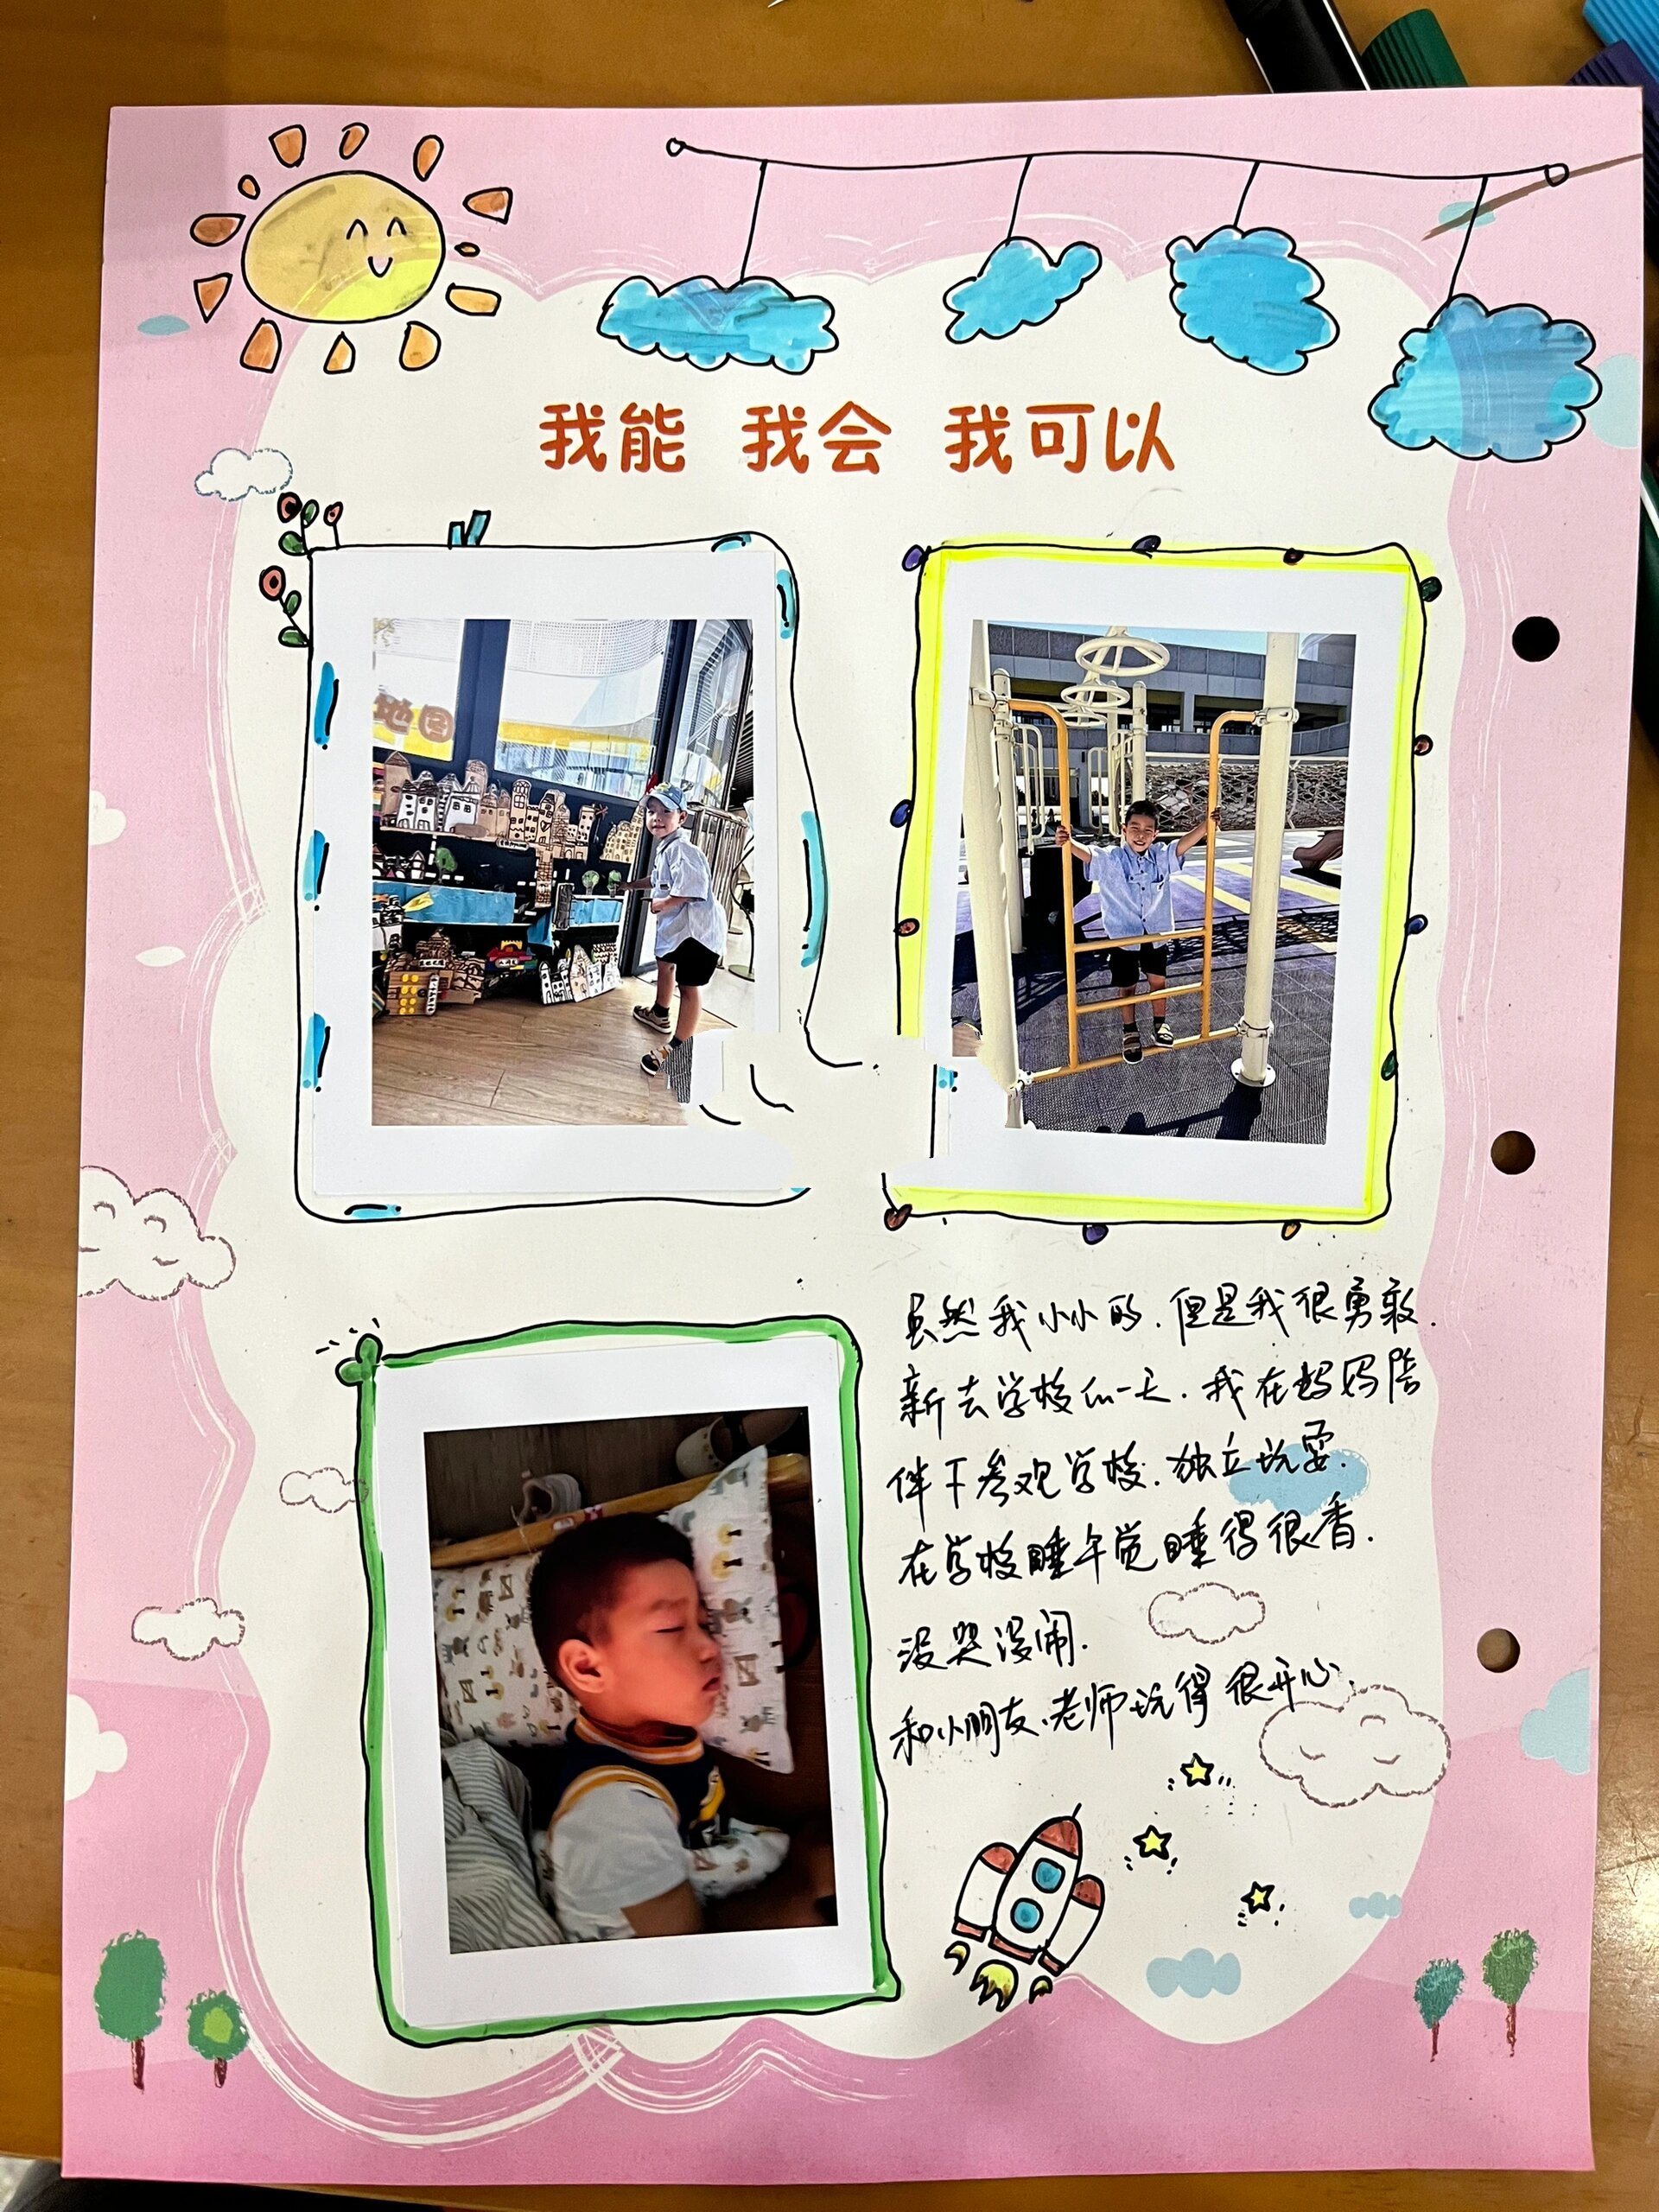 我能 我会 我可以
地图
虽然我小小的.但是我很勇敢.
新去学校的一天.我在妈妈陪
伴下参观学校.独立玩耍.
在学校睡午觉睡得很香.
没哭没闹.
和小朋友、老师玩得很开心.